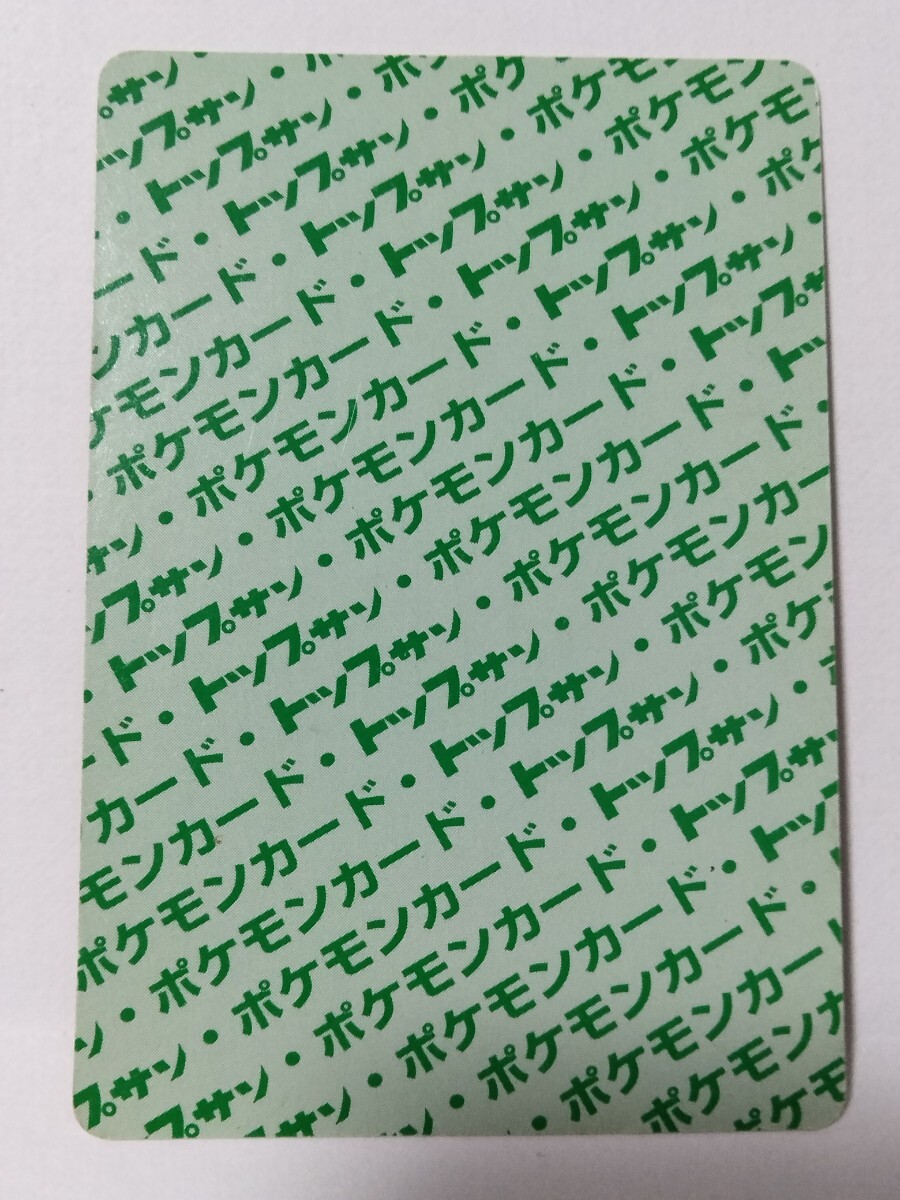 サン
ップサン・
・トップサン・ポ
ード・トップサン・ポケ
ンカード・トップサン・ポケモ
ケモンカード・トップサン・ポケモン
・ポケモンカード・トップサン・ポケモン
サン・ポケモンカード・トップサン・ポケ
ップサン・ポケモンカード・トップサン・
・トップサン・ポケモンカード・トップサ
ード・トップサン・ポケモンカード・トッ
カード・トップサン・ポケモンカード・
モンカード・トップサン・ポケモンカー
ポケモンカード・トップサン・ポケモン
ン・ポケモンカード・トップサン・ポケ
プサン・ポケモンカード・トップサン・
ップサン・ポケモンカード・トップサ
サン・ポケモンカード・トッ
・ポケモンカード・
・ポケモンカー
ポケモンカ
ケモ